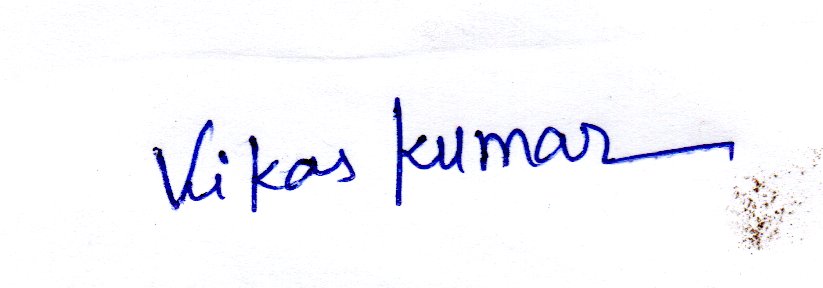 Vikas Kumar